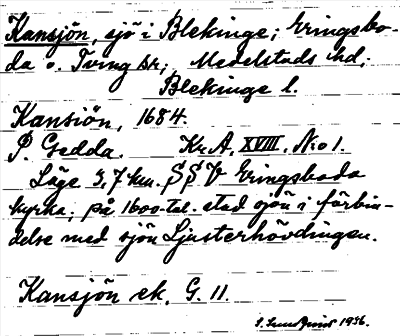 Kansjön, sjö i Blekinge; Eringsbo-
da o. Tving sr; Medelstads hd;
Blekinge l.
Kansiön, 1684.
P. Gedda. Kr.A. XVIII. N:o 1.
Läge 3,7 km. SSV Eringsboda
kyrka; på 1600-tal. stod sjön i förbin-
delse med sjön Ljusterhövdingen.
Kansjön ek. G. 11.
S. Lundqvist 1936.